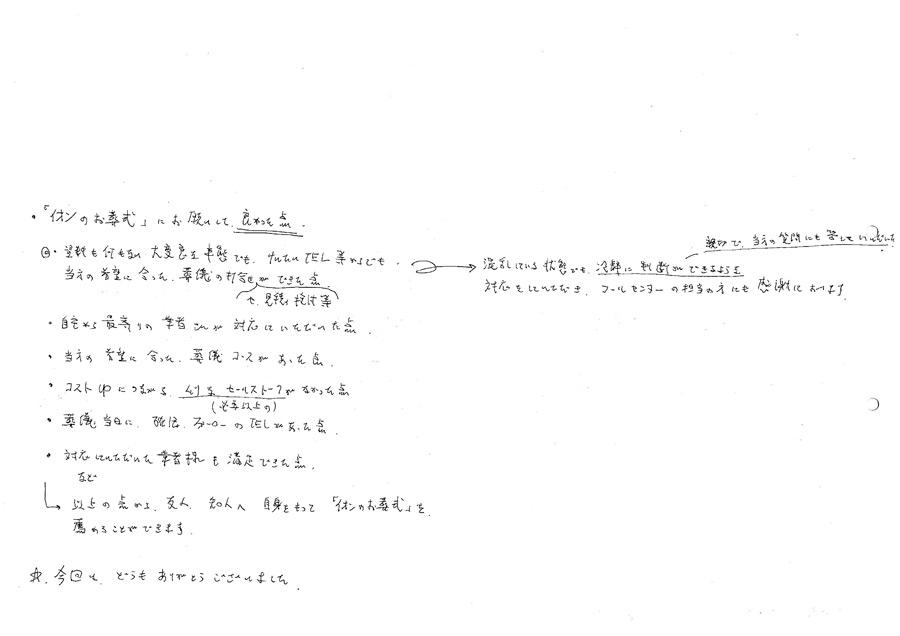 ・「イオンのお葬式」にお願いして、良かった点.
◎・望観も何もない 大変急な事態でも、けいたいTEL等からでも、
当方の希望に合った、葬儀の打合せができた点
や、見積、検討等
親切で、当方の質問にも答していただいた
混乱している状態でも、冷静に判断ができるような
対応をしていただき、コールセンターの担当の方にも 感謝しております
・自宅から最寄りの業者さんが対応していただいた点.
・当方の希望に合った、葬儀コースがあった点.
・コストUPにつながる、ムリな セールストークがなかった点
(必要以上の)
・葬儀当日に、確認、フォローのTELがあった点.
・対応していただいた業者様も満足できた点.
など
以上の点から、友人、知人へ 自身をもって「イオンのお葬式」を、
薦めることができます.
今回は、どうもありがとうございました.